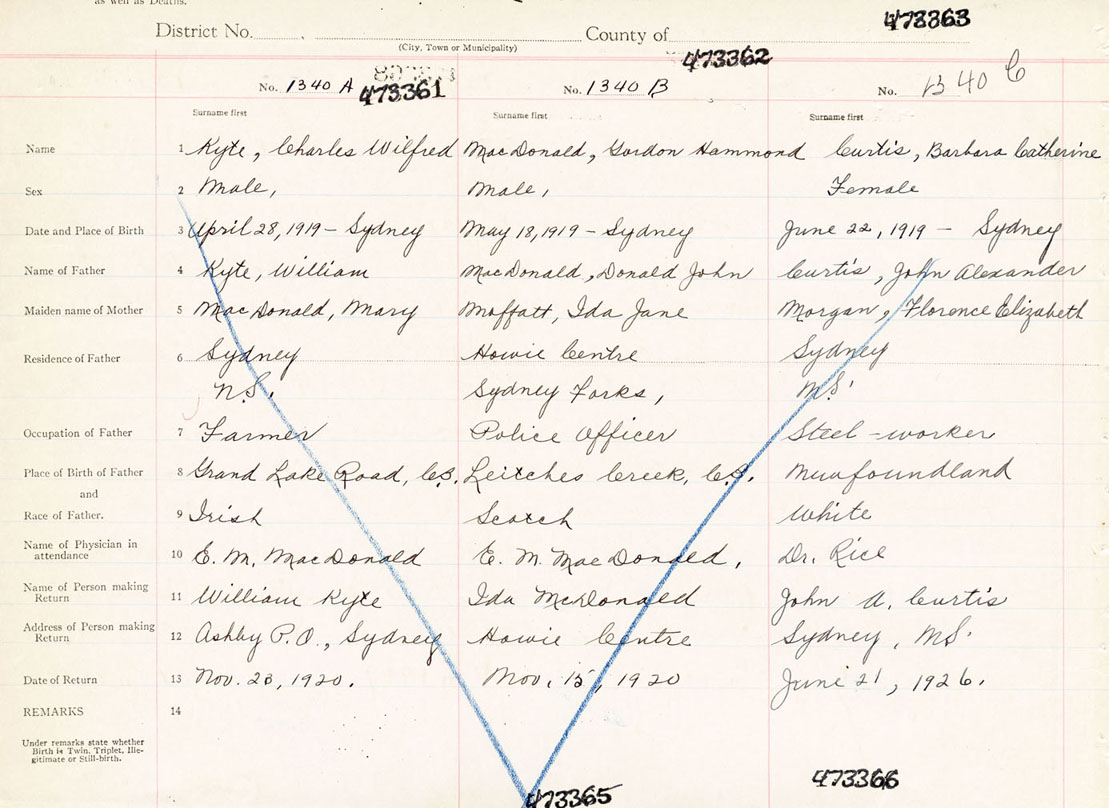 as well as Deaths.
District No. County of 473363
(City, Town or Municipality)
473362
No. 1340 A 473361 No. 1340 B No. 1340 C
Surname first Surname first Surname first
Name 1 Kyte, Charles Wilfred MacDonald, Gordon Hammond Curtis, Barbara Catherine
Sex 2 Male, Male, Female
Date and Place of Birth 3 April 28, 1919 - Sydney May 18, 1919 - Sydney June 22, 1919 - Sydney
Name of Father 4 Kyte, William MacDonald, Donald John Curtis, John Alexander
Maiden name of Mother 5 MacDonald, Mary Moffatt, Ida Jane Morgan, Florence Elizabeth
Residence of Father 6 Sydney Howie Centre Sydney
N.S. Sydney Forks, N.S.
Occupation of Father 7 Farmer Police Officer Steel-worker
Place of Birth of Father 8 Grand Lake Road, C.B. Leitches Creek, C.B. Newfoundland
and
Race of Father. 9 Irish Scotch White
Name of Physician in
attendance 10 E. M. MacDonald E. M. MacDonald, Dr. Rice
Name of Person making
Return 11 William Kyte Ida McDonald John A. Curtis
Address of Person making
Return 12 Ashby P.O., Sydney Howie Centre Sydney, N.S.
Date of Return 13 Nov. 23, 1920. Nov. 15, 1920 June 21, 1926.
REMARKS 14
Under remarks state whether
Birth is Twin, Triplet, Ille-
gitimate or Still-birth.
473365 473366